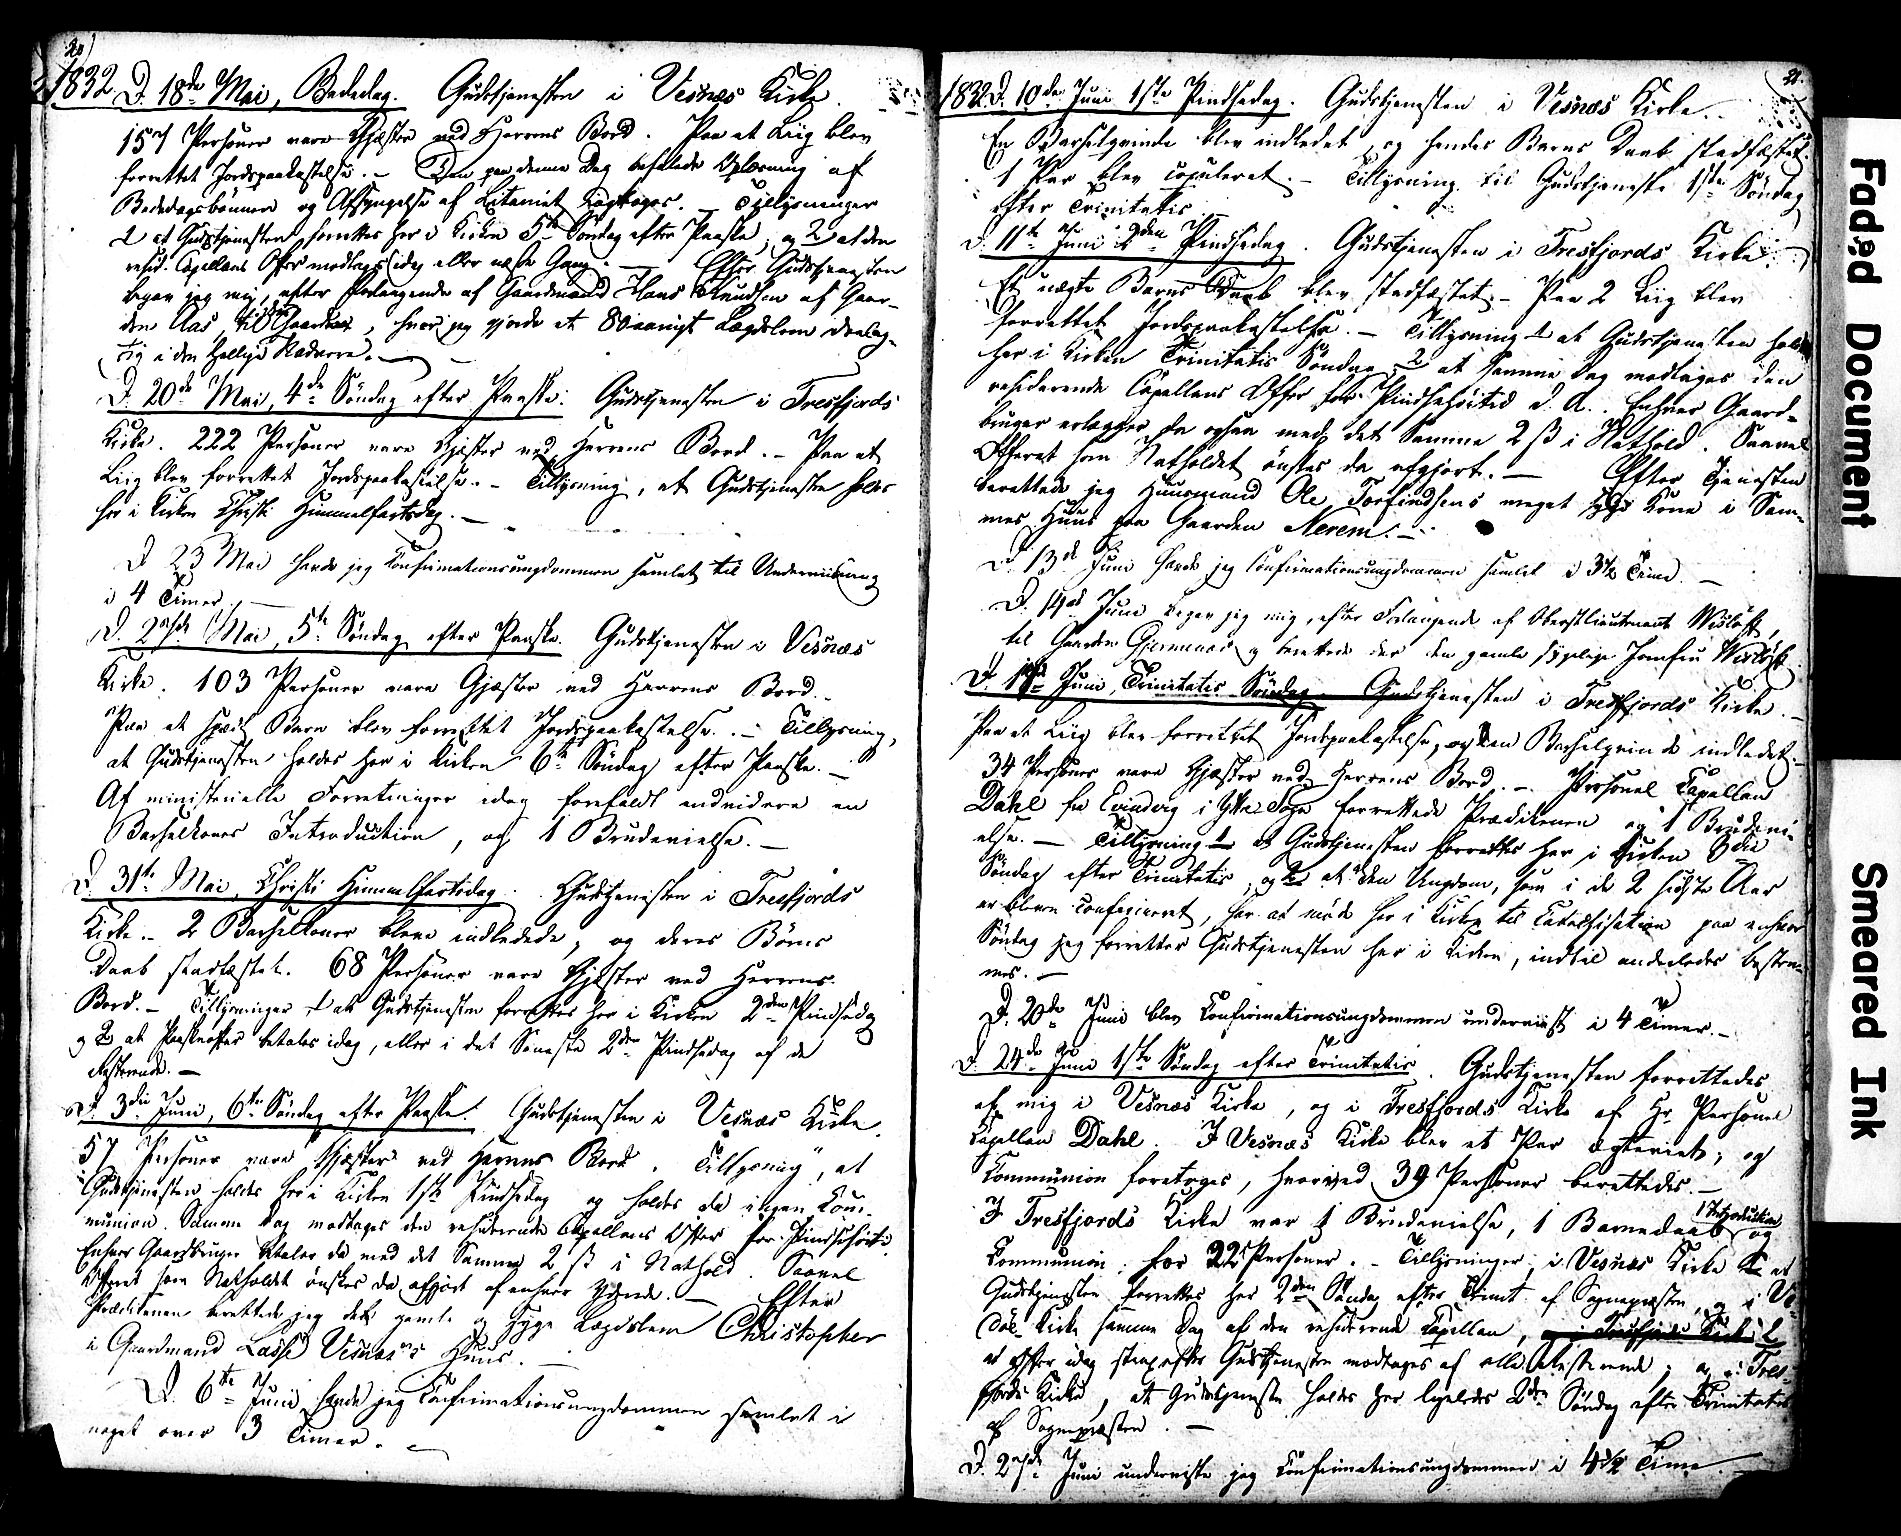 20)
1832 D. 18de Mai, Bededag. Gudstjenesten i Vesnæs Kirke.
157 Personer vare Gjæster ved Herrens Bord. Paa et Liig blev
forrettet Jordspaakastelse. – Den paa denne Dag befalede Oplæsning af
Bededagsbønnen og Afsyngelse af Litaniet foretoges. – Tillysninger
1 at Gudstjenesten forrettes her i Kirken 5te Søndag efter Paaske, og 2 at den
resid. Capellans Offer modtages idag eller næste Gang. – Efter Gudstjenesten
begav jeg mig, efter Forlangende af Gaardmand Hans Knudsen af Gaar-
den Aas, til Gaarden, hvor jeg gjorde et 80aarigt Lægdslem deelag-
tig i den hellige Nadvere. –
D. 20de Mai, 4de Søndag efter Paaske. Gudstjenesten i Tresfjords
Kirke. 222 Personer vare Gjæster ved Herrens Bord. – Paa et
Liig blev forrettet Jordspaakastelse. – Tillysning, at Gudstjenesten holdes
her i Kirken Christi Himmelfartsdag. –
D 23 Mai havde jeg Confirmationsungdommen samlet til Underviisning
i 4 Timer. –
D. 27de Mai, 5te Søndag efter Paaske. Gudstjenesten i Vesnæs
Kirke. 103 Personer vare Gjæster ved Herrens Bord. –
Paa et spædt Barn blev forrettet Jordspaakastelse. – Tillysning,
at Gudstjenesten holdes her i Kirken 6te Søndag efter Paaske. –
Af ministerielle Forretninger idag forefaldt endvidere en
Barselkones Introduction, og 1 Brudevielse. –
D. 31te Mai, Christi Himmelfartsdag. Gudstjenesten i Tresfjords
Kirke. – 2 Barselkoner bleve indledede, og deres Børns
Daab stadfæstet. 68 Personer vare Gjæster ved Herrens
Bord. – Tillysninger 1 at Gudstjenesten forrettes her i Kirken 2den Pindsedag
og 2 at Paaskeoffer betales idag, eller i det Seneste 2den Pindsedag af de
Resterende. –
D. 3die Juni, 6te Søndag efter Paaske. Gudstjenesten i Vesnæs Kirke.
57 Personer vare Gjæster ved Herrens Bord. Tillysning, at
Gudstjenesten holdes her i Kirken 1ste Pindsedag og holdes da ingen Com-
munion. Samme Dag modtages den residerende Capellans Offer for Pindsehøitid.
Enhver Gaardbruger betaler da med det Samme 2 ß i Nathold. Saavel
Offeret som Natholdet ønskes da afgjort af enhver Ydende. – Efter
Prædikenen berettede jeg det gamle og syge Lægdslem Christopher
i Gaardmand Lasse Vesnæs's Huus. –
D. 6te Juni havde jeg Confirmationsungdommen samlet i
noget over 3 Timer. –
21.
1832 D. 10de Juni 1ste Pindsedag. Gudstjenesten i Vesnæs Kirke. –
En Barselqvinde blev indledet, og hendes Barns Daab stadfæstet.
1 Par blev copuleret. – Tillysning til Gudstjeneste 1ste Søndag
efter Trinitatis
D. 11te Juni 2den Pindsedag. Gudstjenesten i Tresfjords Kirke.
Et uægte Barns Daab blev stadfæstet. – Paa 2 Liig blev
forrettet Jordspaakastelse. – Tillysning 1 at Gudstjenesten holdes
her i Kirken Trinitatis Søndag, 2 at samme Dag modtages den
residerende Capellans Offer for Pindsehøitid d. A. Enhver Gaard-
bruger erlægger da ogsaa med det Samme 2 ß i Nathold. Saavel
Offeret som Natholdet ønskes da afgjort. – Efter Tjenesten
berettede jeg Huusmand Ole Torfindsens meget syge Kone i Sam-
mes Huus paa Gaarden Nerem. –
D. 13de Juni havde jeg Confirmationsungdommen samlet i 3½ Time. –
D. 14de Juni begav jeg mig, efter Forlangende af Oberstlieutenant Wisløff,
til Gaarden Gjermenæs og berettede der den gamle sygelige Jomfru Wisløff.
D. 17de Juni, Trinitatis Søndag. Gudstjenesten i Tresfjords Kirke. –
Paa et Liig blev forrettet Jordspaakastelse, og en Barselqvinde indledet. –
34 Personer vare Gjæster ved Herrens Bord. – Personel Capellan
Dahl fra Evindvig i Ytre Sogn forrettede Prædikenen og 1 Brudevi-
else. – Tillysning 1 at Gudstjenesten forrettes her i Kirken 3die
Søndag efter Trinitatis, og 2 at den Ungdom, som i de 2 sidste Aar
er bleven confirmeret, har at møde her i Kirken til Catechisation paa enhver
Søndag jeg forretter Gudstjenesten her i Kirken, indtil anderledes bestem-
mes. –
D. 20de Juni blev Confirmationsungdommen underviist i 4 Timer. –
D. 24de Juni 1ste Søndag efter Trinitatis. Gudstjenesten forrettedes
af mig i Vesnæs Kirke, og i Tresfjords Kirke af Hr. Personel
Capellan Dahl. I Vesnæs Kirke blev et Par ægteviet, og
Communion foretoges, hvorved 39 Personer berettedes. –
I Tresfjords Kirke var 1 Brudevielse, 1 Barnedaab, 1 Introduction og
Communion for 22 Personer. – Tillysninger: i Vesnæs Kirke at
Gudstjenesten forrettes her 2den Søndag efter Trinit. af Sognepræsten, og i Vo-
döe Kirke samme Dag af den residerende Capellan, og i Tresfjords Kirke 2
at Offer idag strax efter Gudstjenesten modtages af alle Resterende; og i Tres-
fjords Kirke, at Gudstjenesten holdes her ligeledes 2den Søndag efter Trinitatis
af Sognepræsten. –
D. 27de Juni underviste jeg Confirmationsungdommen i 4½ Time
Faded Document
Smeared Ink